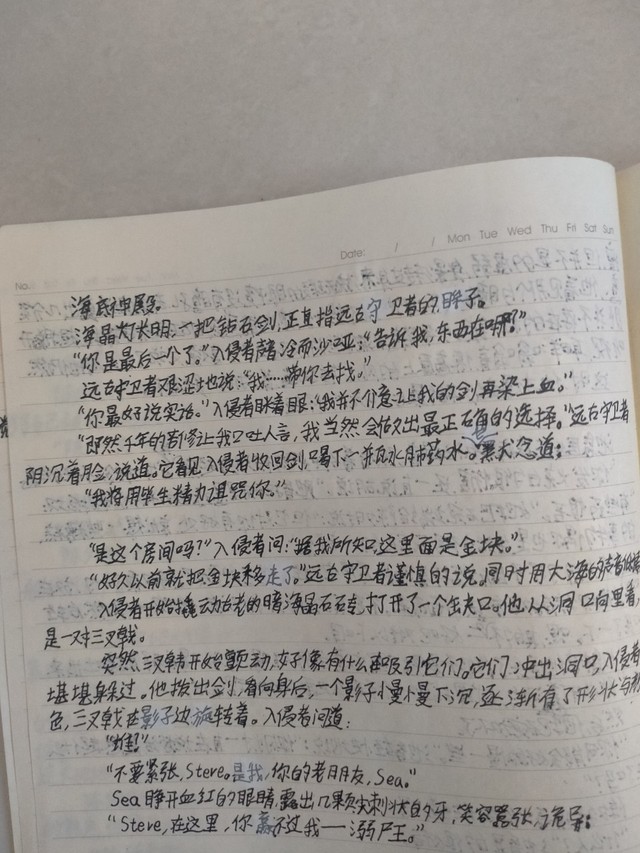 No.
Date: / / Mon Tue Wed Thu Fri Sat Sun
海底神殿。
海晶灯长明,一把钻石剑,正直指远古守卫者的眸子。
“你是最后一个了。”入侵者声音冷而沙哑:“告诉我,东西在哪?”
远古守卫者艰涩地说:“我……带你去找。”
“你最好说实话。”入侵者眯着眼:“我并不介意让我的剑再染上血。”
“既然千年的苦修让我口吐人言,我当然会做出最正确的选择。”远古守卫者
阴沉着脸,说道。它看见入侵者收回剑,喝下一并瓦水肺药水。默念道:
“我将用毕生精力诅咒你。”
“是这个房间吗?”入侵者问:“据我所知,这里面是金块。”
“好久以前就把金块移走了。”远古守卫者谨慎的说,同时用大海的声音
入侵者开始撬动古老的暗海晶石砖,打开了一个缺口。他从洞口向里看,
是一对三叉戟。
突然,三叉戟开始颤动,好像有什么再吸引它们。它们冲出洞口,入侵者
堪堪躲过。他拔出剑,看向身后,一个影子慢慢下沉,逐渐有了形状与颜
色,三叉戟在影子边旋转着。入侵者问道:
“谁!”
“不要紧张,Steve。是我,你的老朋友,Sea。”
Sea睁开血红的眼睛,露出几颗尖刺状的牙,笑容嚣张,诡异:
“Steve,在这里,你赢不过我——溺尸王。”